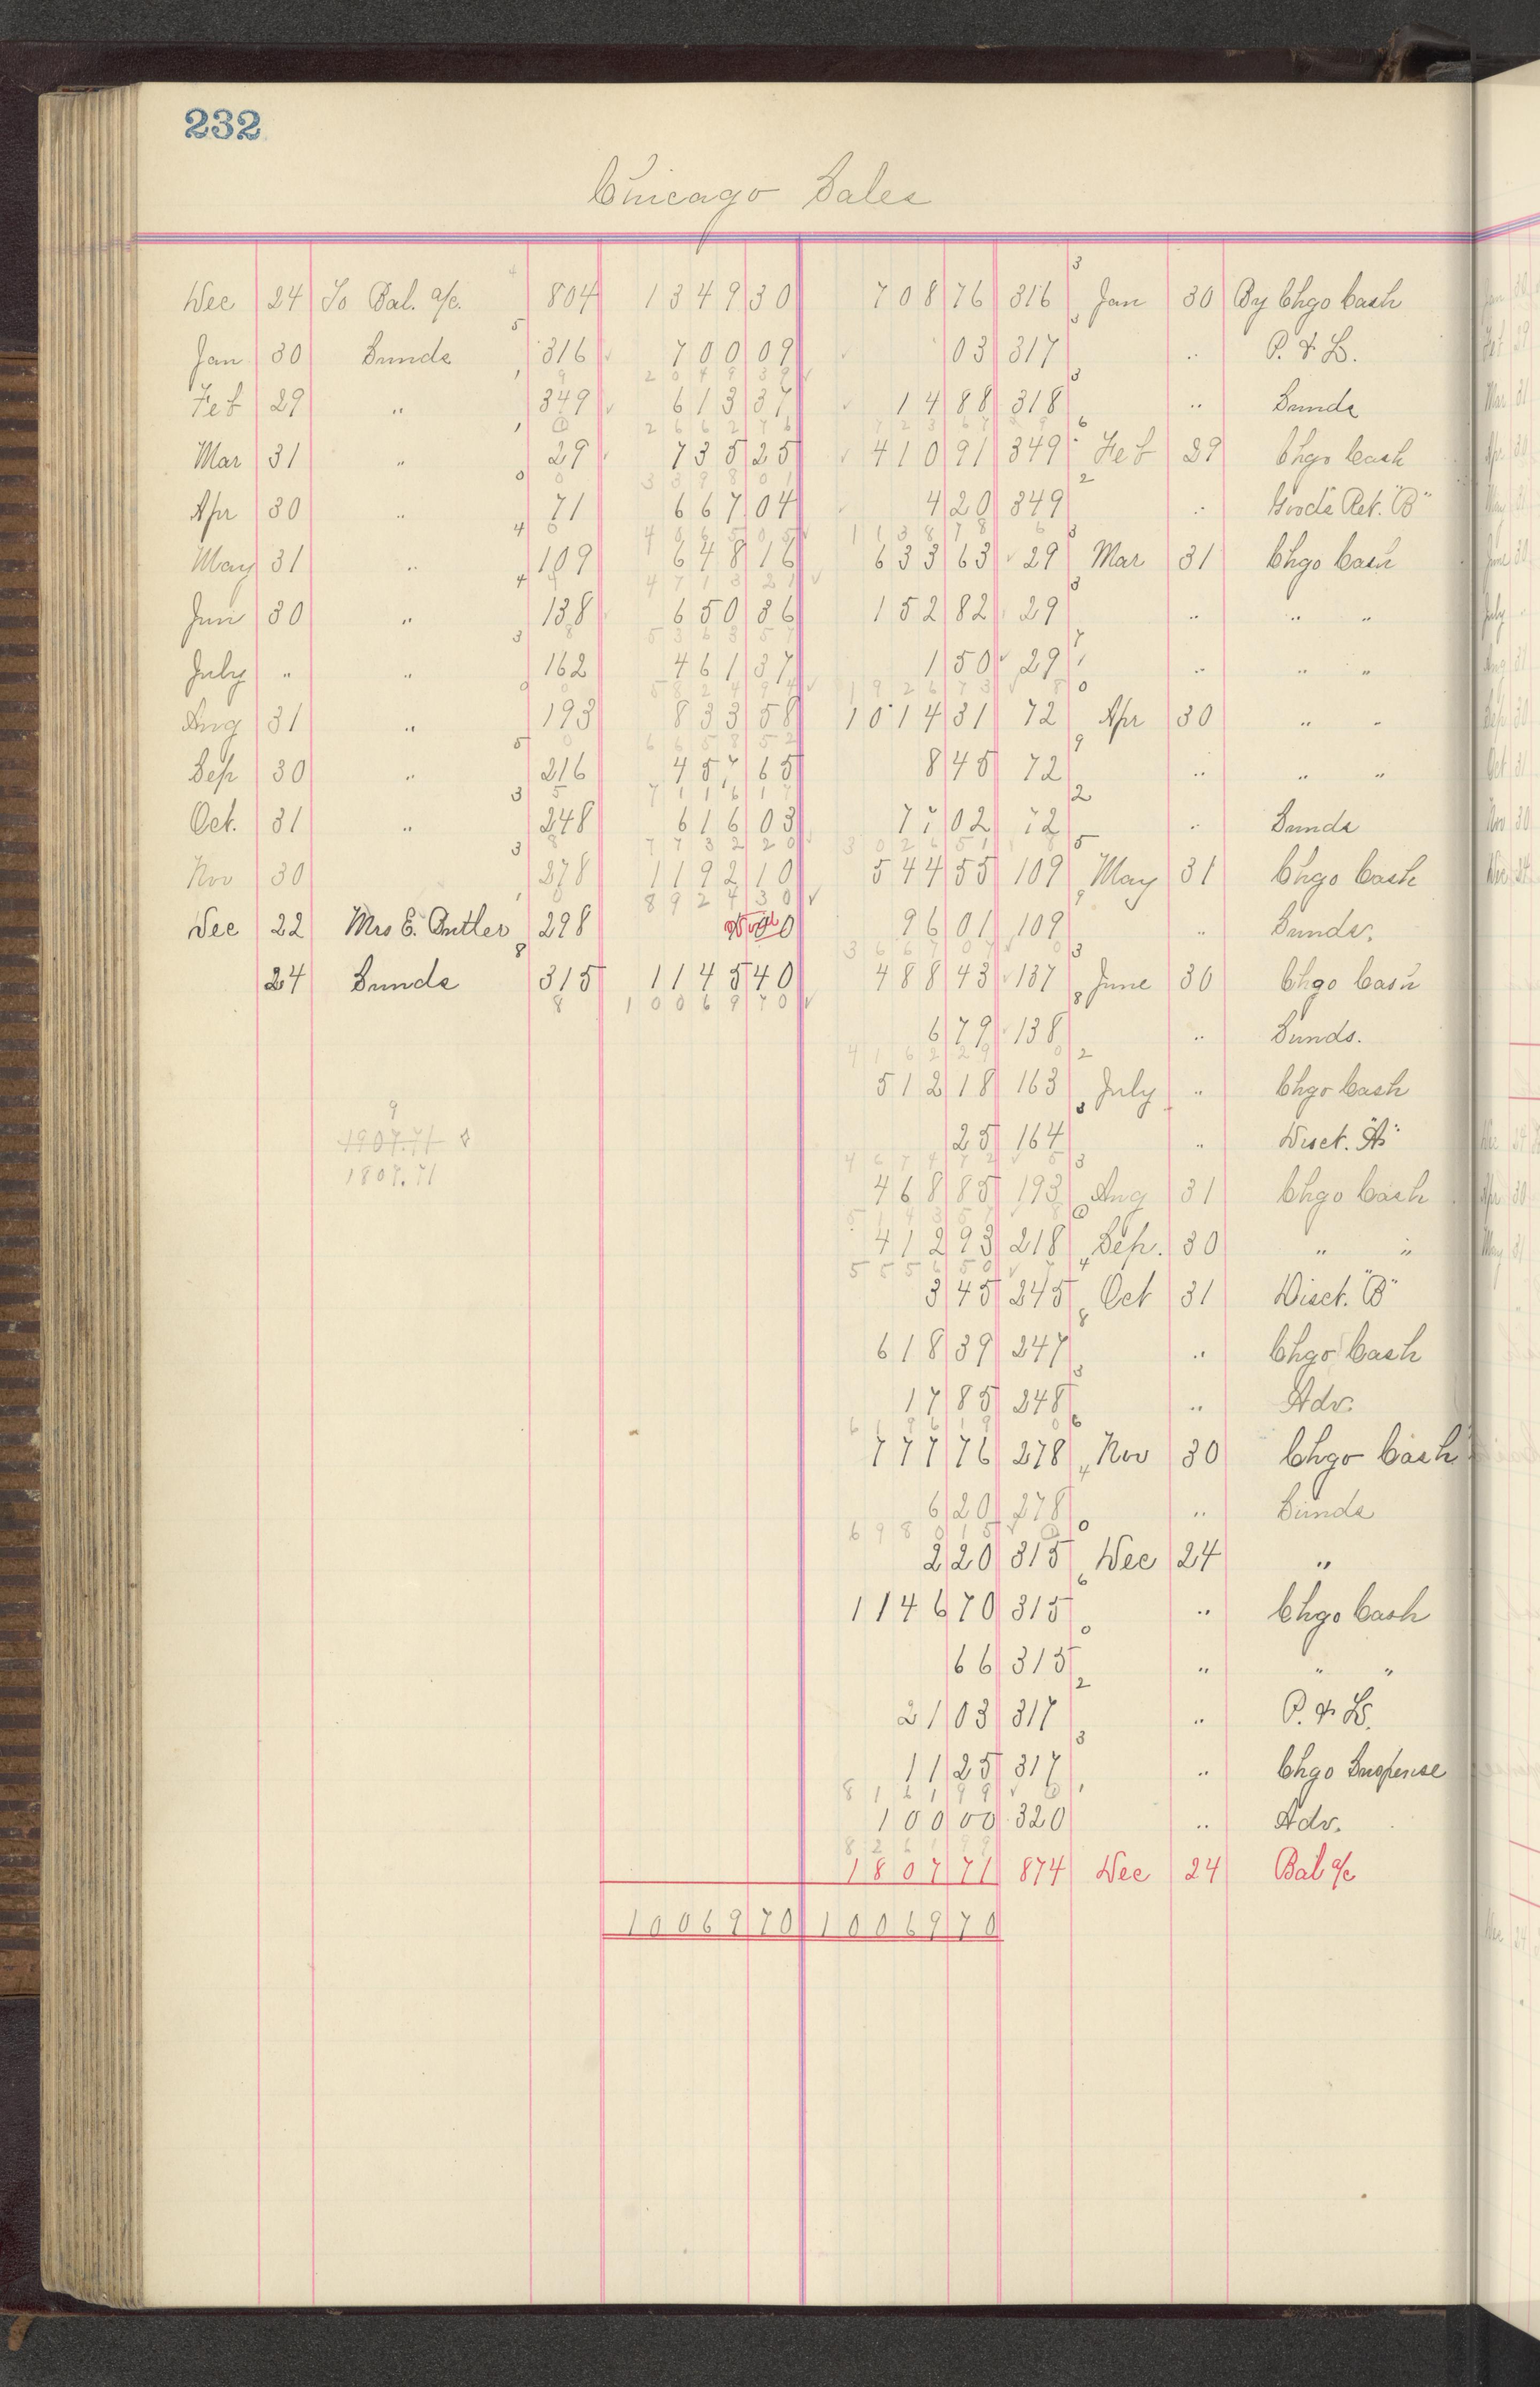 232
Chicago Sales
Dec 24 To Bal. a/c. 804 1349 30 708 76 316 Jan 30 By Chgo Cash
Jan 30 Sunds 316 700 09 03 317 " P. & L.
2049 39
Feb 29 " 349 613 37 14 88 318 " Sunds
2662 76 723 67
Mar 31 " 29 735 25 410 91 349 Feb 29 Chgo Cash
3398 01
Apr 30 " 71 667 04 4 20 349 " Goods Ret. "B"
4065 05 1138 78
May 31 " 109 648 16 633 63 29 Mar 31 Chgo Cash
4713 21
Jun 30 " 138 650 36 152 82 29 " " "
5363 57
July " " 162 461 37 1 50 29 " " "
5824 94 1926 73
Aug 31 " 193 833 58 1014 31 72 Apr 30 " "
6658 52
Sep 30 " 216 457 65 8 45 72 " " "
7116 17
Oct. 31 " 248 616 03 77 02 72 " Sunds
7732 20 3026 51
Nov 30 278 1192 10 544 55 109 May 31 Chgo Cash
8924 30
Dec 22 Mrs E. Antler 298 00 96 01 109 " Sunds.
3667 07
24 Sunds 315 1145 40 488 43 137 June 30 Chgo Cash
10069 70
6 79 138 " Sunds.
4162 29
512 18 163 July " Chgo Cash
1907.71
25 164 " Disct. "A"
4674 72
1807.71
468 85 193 Aug 31 Chgo Cash
5143 57
412 93 218 Sep. 30 " "
5556 50
3 45 245 Oct 31 Disct. "B"
618 39 247 " Chgo Cash
17 85 248 " Adv.
6196 19
777 76 278 Nov 30 Chgo Cash
6 20 278 " Sunds
6980 15
2 20 315 Dec 24 "
1146 70 315 " Chgo Cash
66 315 " " "
21 03 317 " P. & L.
11 25 317 " Chgo Suspense
8161 99
100 00 320 " Adv.
8261 99
1807 71 874 Dec 24 Bal a/c
10069 70 10069 70